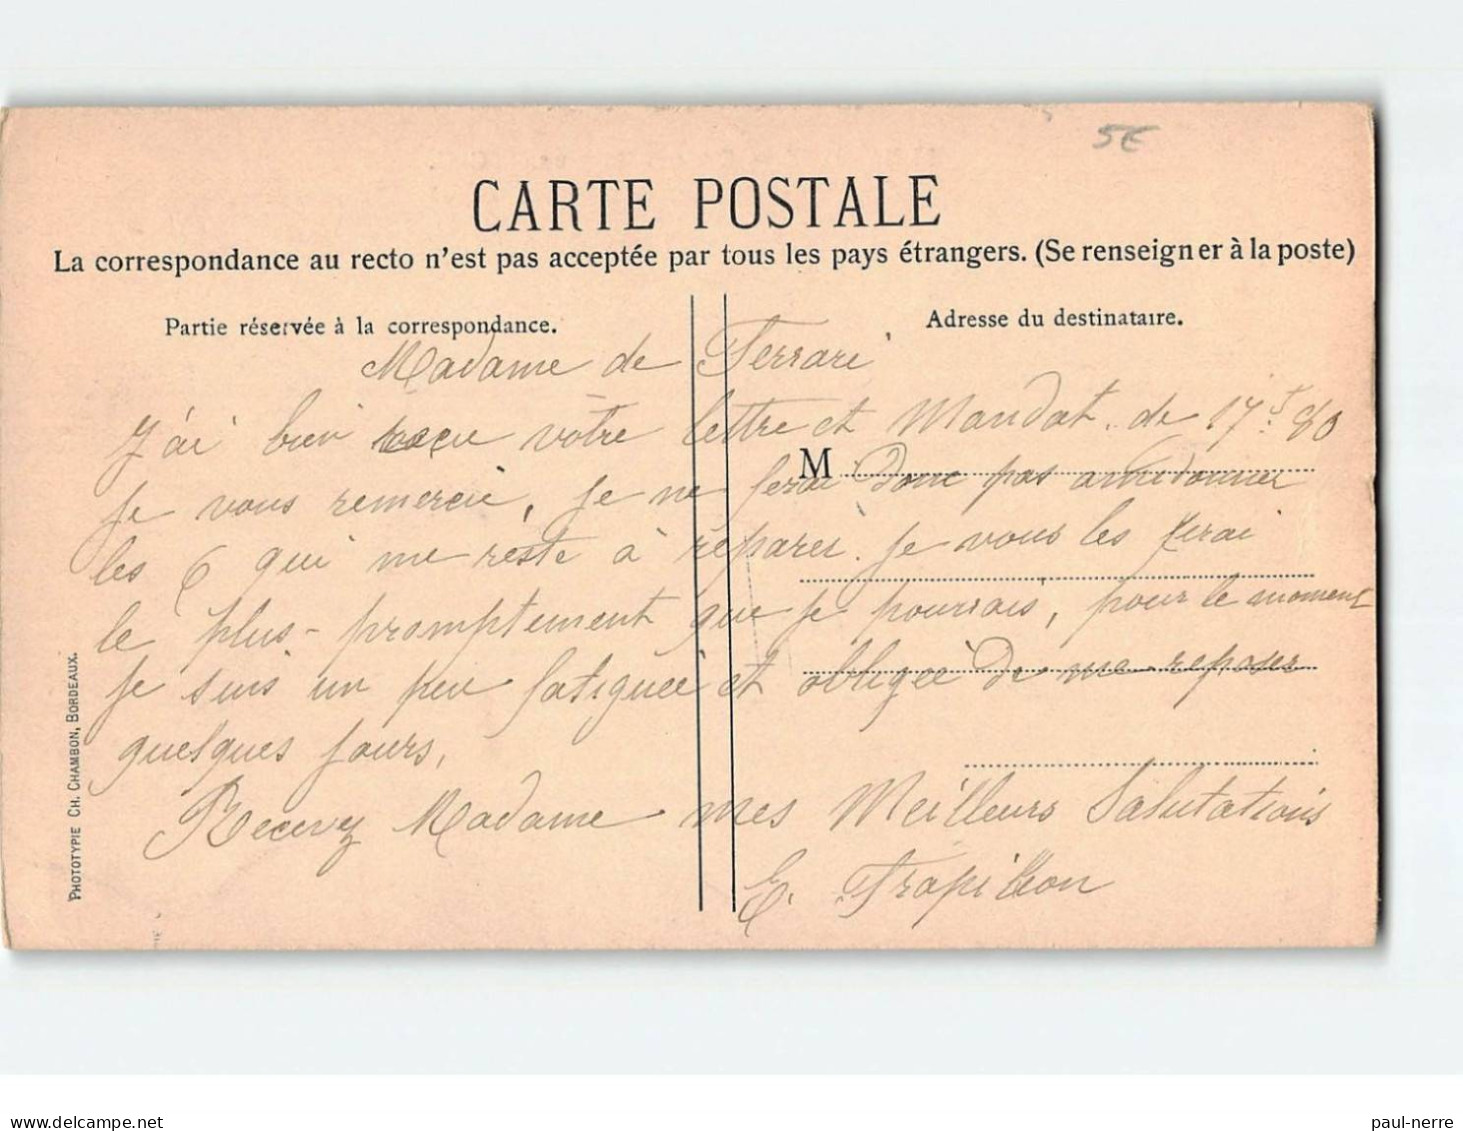 5€
CARTE POSTALE
La correspondance au recto n'est pas acceptée par tous les pays étrangers. (Se renseigner à la poste)
Partie réservée à la correspondance.
Adresse du destinataire.
Madame de Ferrari
J'ai bien reçu vôtre lettre et Mandat de 17.f 80
M
je vous remercie, je ne ferai donc pas amidonner
les 6 qui me reste à réparer. je vous les ferai
le plus promptement que je pourrais, pour le moment
je suis un peu fatiguée et obligée de me reposer
quelques jours,
Recevez Madame mes Meilleurs Salutations
E. Trapillon
PHOTOTYPIE CH. CHAMBON, BORDEAUX.
paul-nerre
delcampe.net